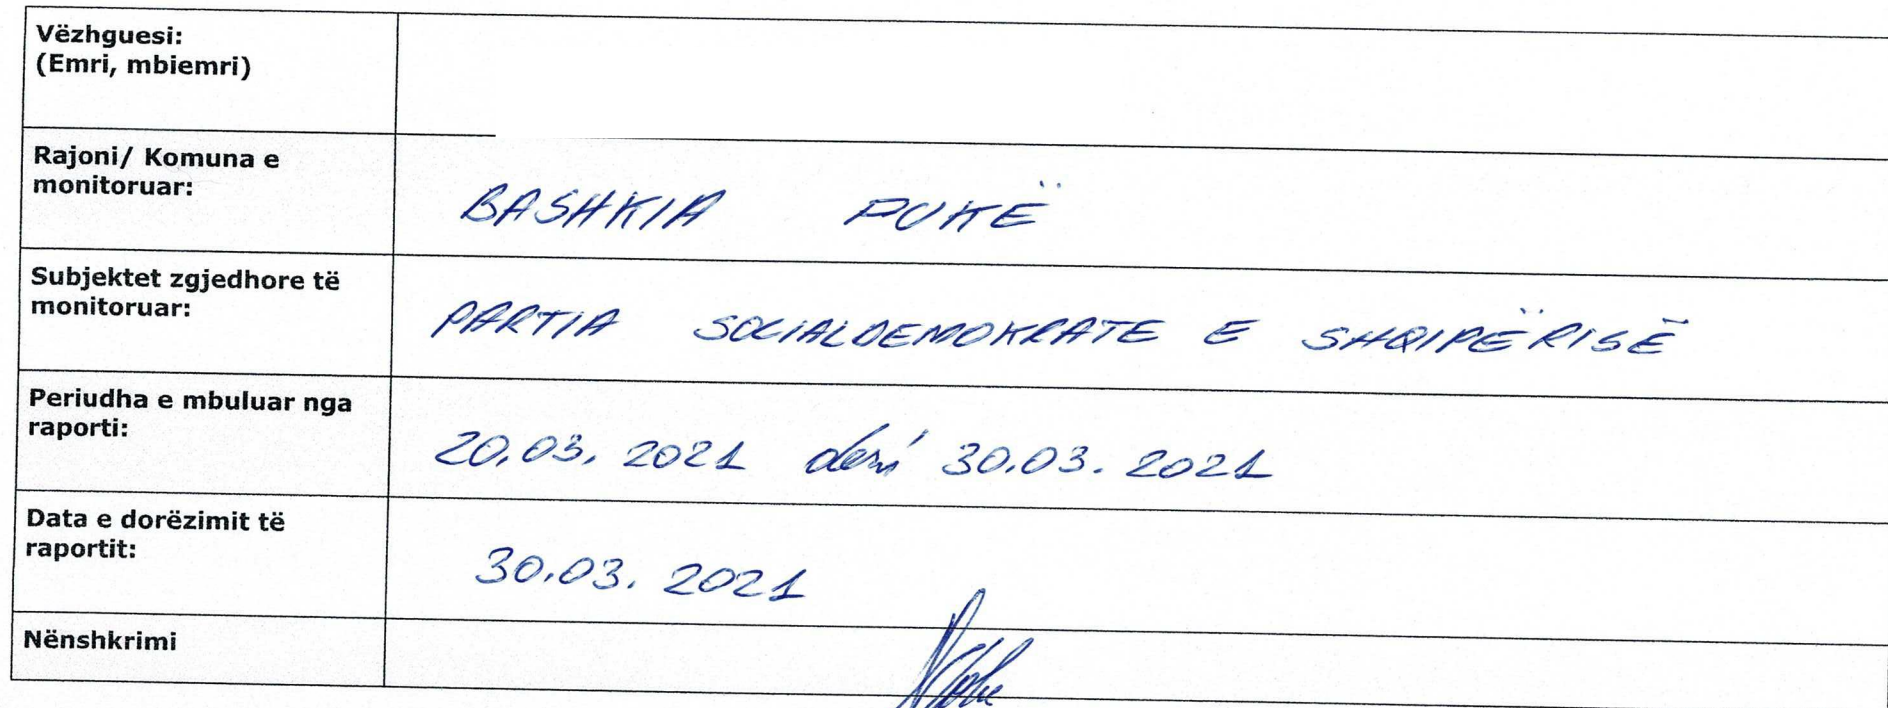 Vëzhguesi:
(Emri, mbiemri)
Rajoni/ Komuna e
monitoruar:
BASHKIA PUKË
Subjektet zgjedhore të
monitoruar:
PARTIA SOCIALDEMOKRATE E SHQIPËRISË
Periudha e mbuluar nga
raporti:
20.03. 2021 deri 30.03. 2021
Data e dorëzimit të
raportit:
30.03. 2021
Nënshkrimi